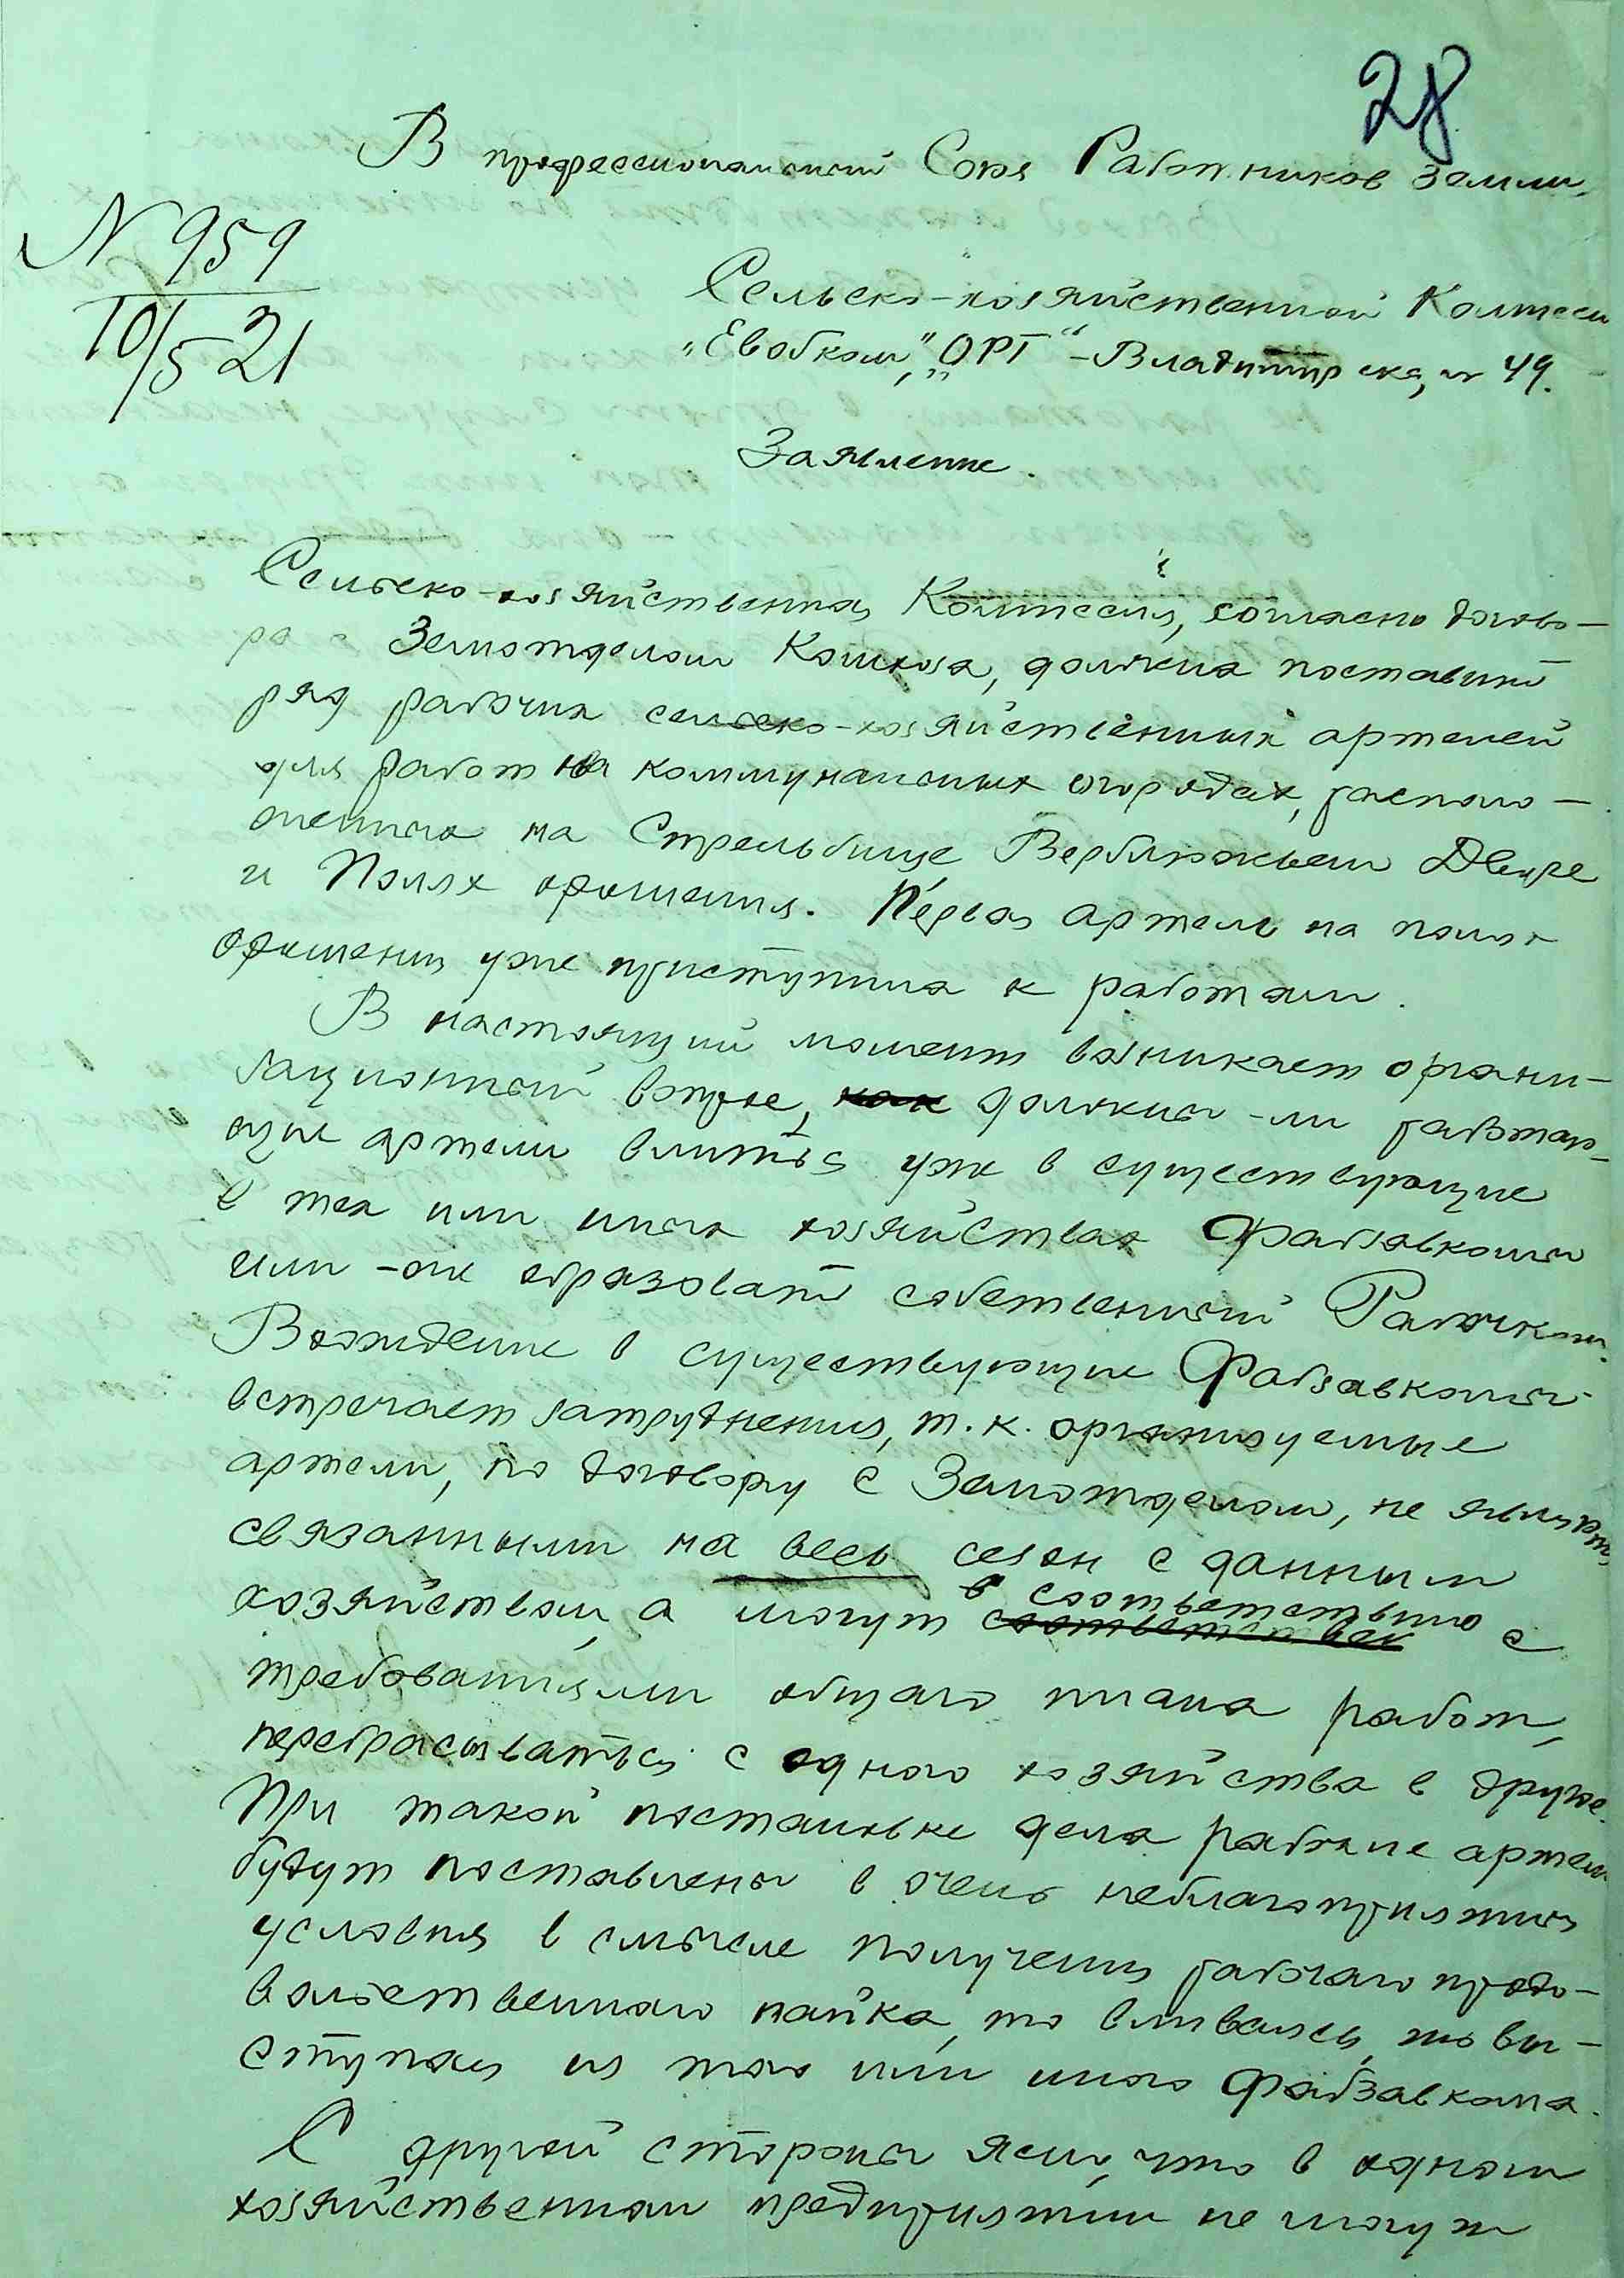 28
В профессиональный Союз Работников Земли,
N 959
10/5 21
Сельско-хозяйственной Комиссии
„Евобком", „ОРТ" – Владимирская, № 49.
Заявление.
Сельско-хозяйственная Комиссия, согласно догово-
ра с Земотделом Комхоза, должна поставить
ряд рабочих сельско-хозяйственных артелей
для работ на коммунальных огородах, располо-
женных на Стрельбище, Верблюжьем Дворе
и Полях орошения. Первая артель на полях
орошения уже приступила к работам.
В настоящий момент возникает органи-
зационный вопрос, как должны-ли работаю-
щие артели влиться уже в существующие
в тех или иных хозяйствах Фабзавкомы
или-же образовать собственный Рабочком.
Вхождение в существующие Фабзавкомы
встречает затруднения, т.к. организуемые
артели, по договору с Земотделом, не являются
связанными на весь сезон с данным
в соответствии
хозяйством, а могут с
требованиями общаго плана работ,
перебрасываться с одного хозяйства в другое.
При такой постановке дела рабочие артели
будут поставлены в очень неблагоприятныя
условия в смысле получения рабочаго продо-
вольственнаго пайка, то вливаясь, то вы-
ступая из того или иного Фабзавкома.
С другой стороны ясно, что в одном
хозяйственном предприятии не могут